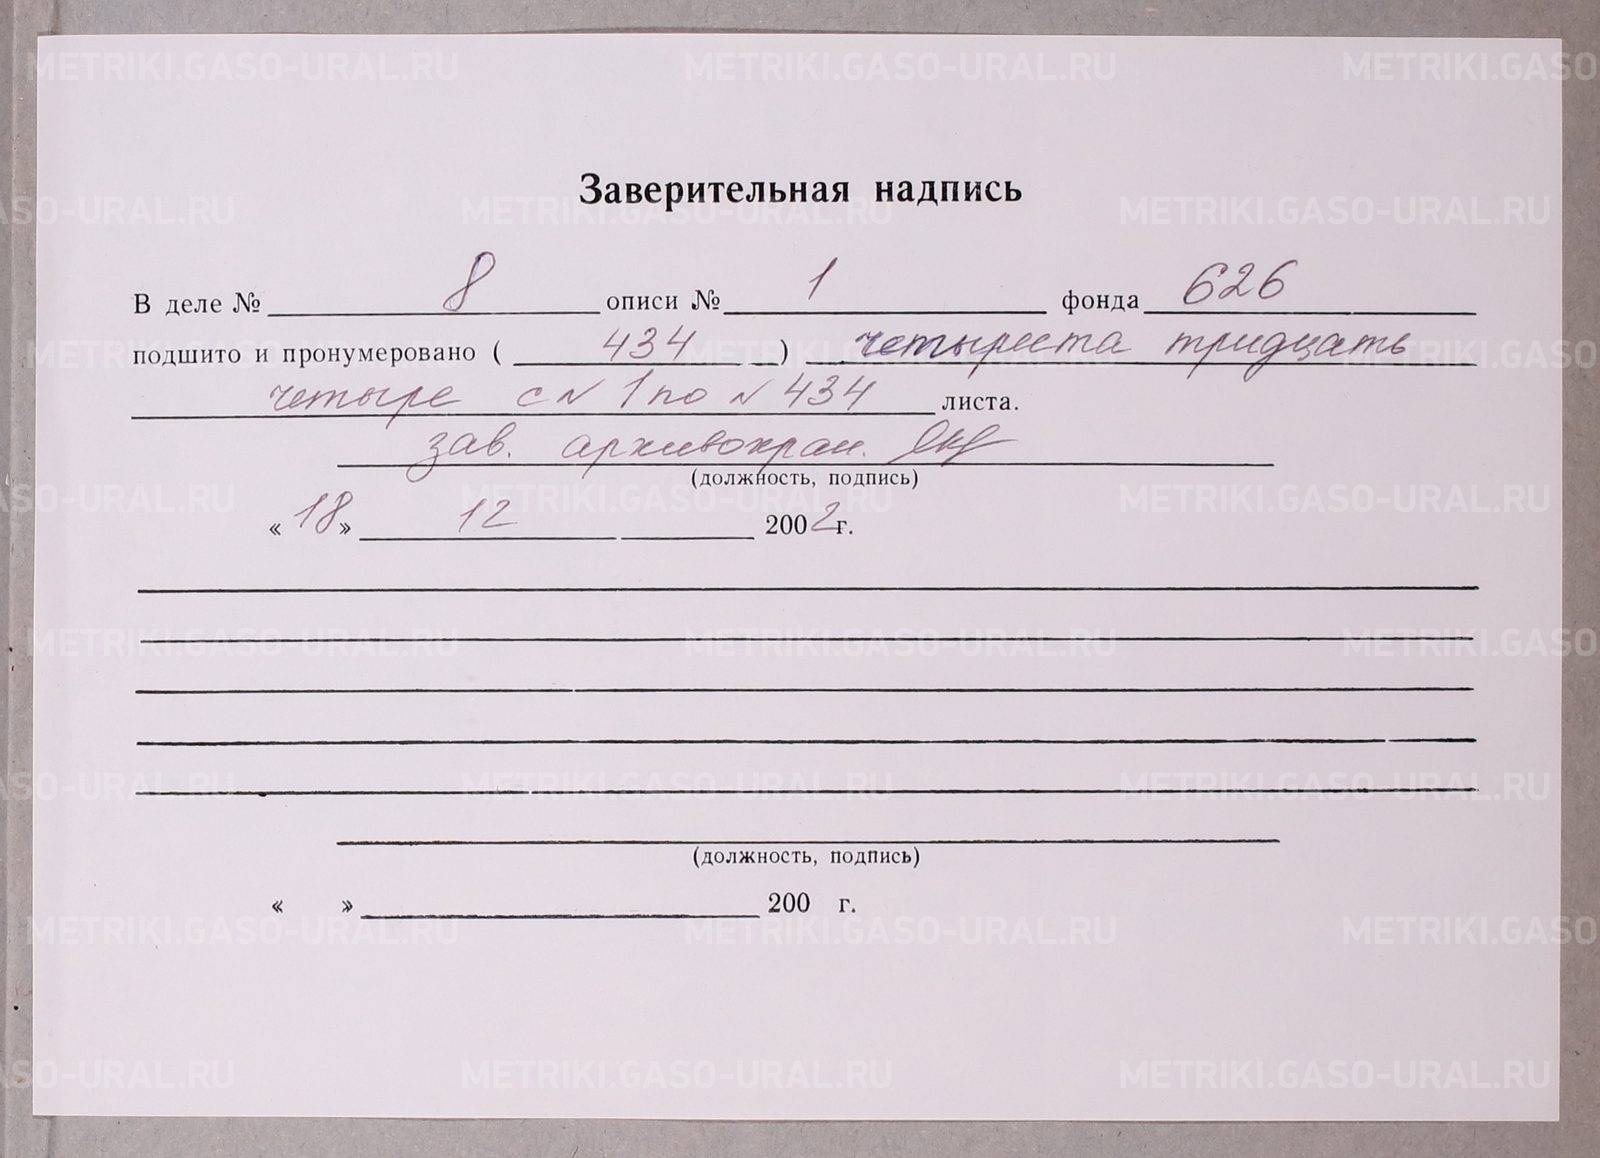 Заверительная надпись
В деле № 8 описи № 1 фонда 626
подшито и пронумеровано ( 434 ) четыреста тридцать
четыре с № 1 по № 434 листа.
зав. архивохран.
(должность, подпись)
« 18 » 12 2002 г.
(должность, подпись)
« » 200 г.
METRIKI.GASO-URAL.RU